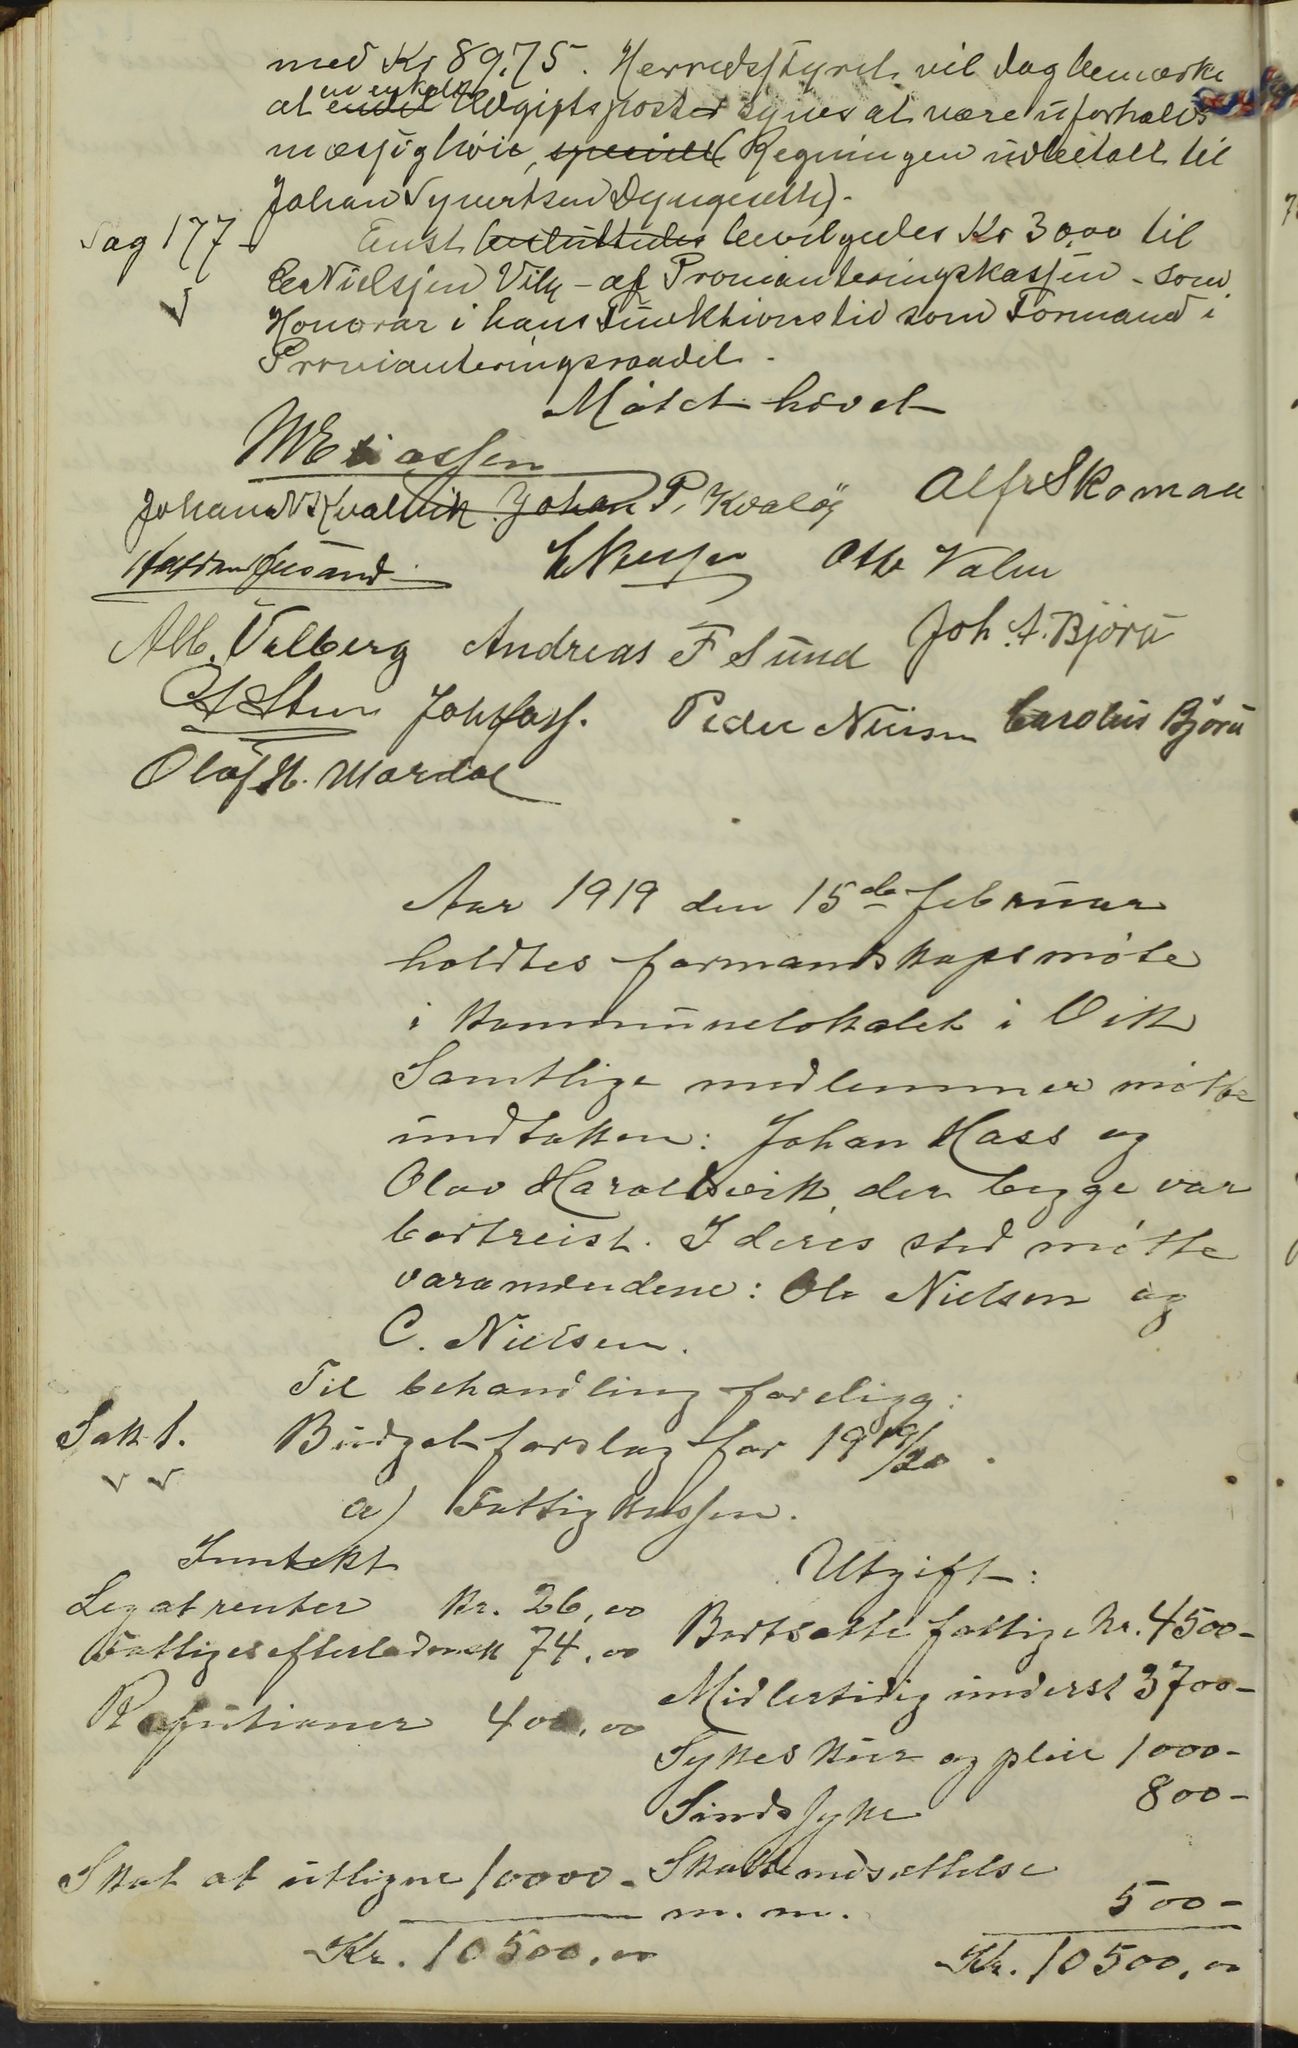 med Kr 89,75. Herredsstyret vil dog bemærke
at en enkelte endel Utgiftsposter synes at være uforholds
mæssig høie, specielt (Regningen udbetalt til
Johan Syvertsen Dyngeseth).
Sag 177 Enst besluttedes bevilgedes Kr 30,00 til
E Nielssen Vik - af Provianteringskassen - som
Honorar i hans Funktionstid som Formand i
Provianteringsraadet.
Mötet hævet
M Eliassen
Johan N Kvalvik Johan P. Kvaløy Alfr Skoman
Halfdan Husand E Nielssen Otto Valen
Alb. Velberg Andreas F Sund Joh. A. Björu
Joh Hass. Peder Nilsen Carolus Björu
Olaf H. Mardal
Aar 1919 den 15de februar
holdtes formandskapsmöte
i Kommunelokalet i Vik
Samtlige medlemmer mötte
undtakken: Johan Hass og
Olav Haraldsvik, der begge var
bortreist. I deres sted mötte
varamendene: Ole Nielsen og
C. Nielsen.
Til behandling foreligg:
Sak 1. Budgetforslag for 1919/20.
a) Fattigkassen.
Inntekt Utgift:
Legatrenter kr. 26,00 Bortsatte fattige kr. 4500-
Fattiges efterladensk 74,00 Midlertidig underst 3700-
Refusioner 400,00 Sykes kur og pleie 1000-
Sindssyke 800-
Skat at utligne 10000- Skattenedsættelse
m. m. 500-
Kr. 10500,00 Kr. 10500,00